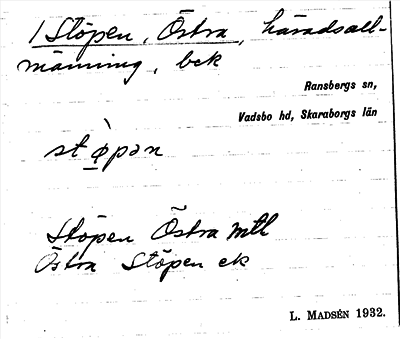 1 Stöpen, Östra, häradsall-
männing, bek
Ransbergs sn,
Vadsbo hd, Skaraborgs län
stø̀pən
Stöpen Östra mtl
Östra Stöpen ek
L. MADSÉN 1932.